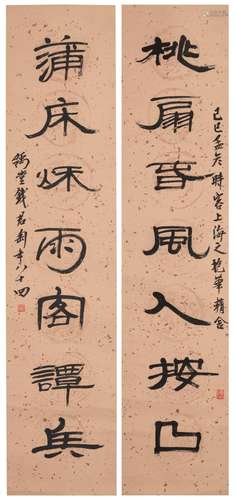 桃扇春風人按凸
己巳孟冬時客上海之抱華精舍
蒲床秋雨客譚兵
豫堂錢君匋年八十四